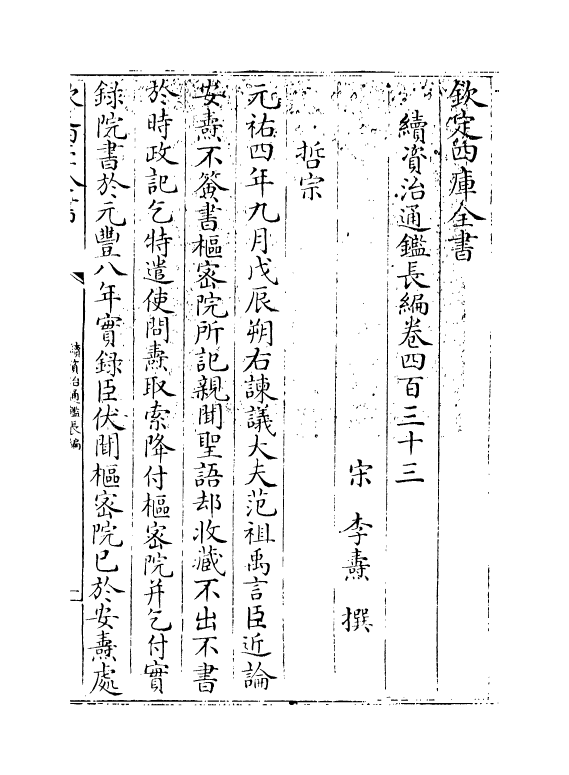 欽定四庫全書
續資治通鑑長編卷四百三十三
宋 李燾 撰
哲宗
元祐四年九月戊辰朔右諫議大夫范祖禹言臣近論
安燾不簽書樞密院所記親聞聖語却收藏不出不書
於時政記乞特遣使問燾取索降付樞密院并乞付實
錄院書於元豐八年實錄臣伏聞樞密院已於安燾處
欽定四庫全書
續資治通鑑長編